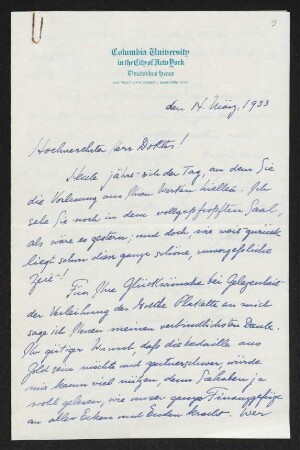 Columbia University
in the City of New York
Deutsches Haus
den 14. März, 1933
Hochverehrter Herr Doktor!
Heute jährt sich der Tag, an dem Sie
die Vorlesung aus Ihren Werken hielten. Ich
sehe Sie noch in dem vollgepfropften Saal,
als wäre es gestern; und doch, wie weit zurück
liegt schon diese ganze schöne, unvergessliche
Zeit!
Für Ihre Glückwünsche bei Gelegenheit
der Verleihung der Goethe Plakette an mich
sage ich Ihnen meinen verbindlichsten Dank.
Ihr gütiger Wunsch, daß die Medaille aus
Gold sein möchte und zentnerschwer, würde
mir kaum viel nützen, denn Sie haben ja
wohl gelesen, wie unser ganzes Finanzgefüge
an allen Ecken und Enden kracht. Wer